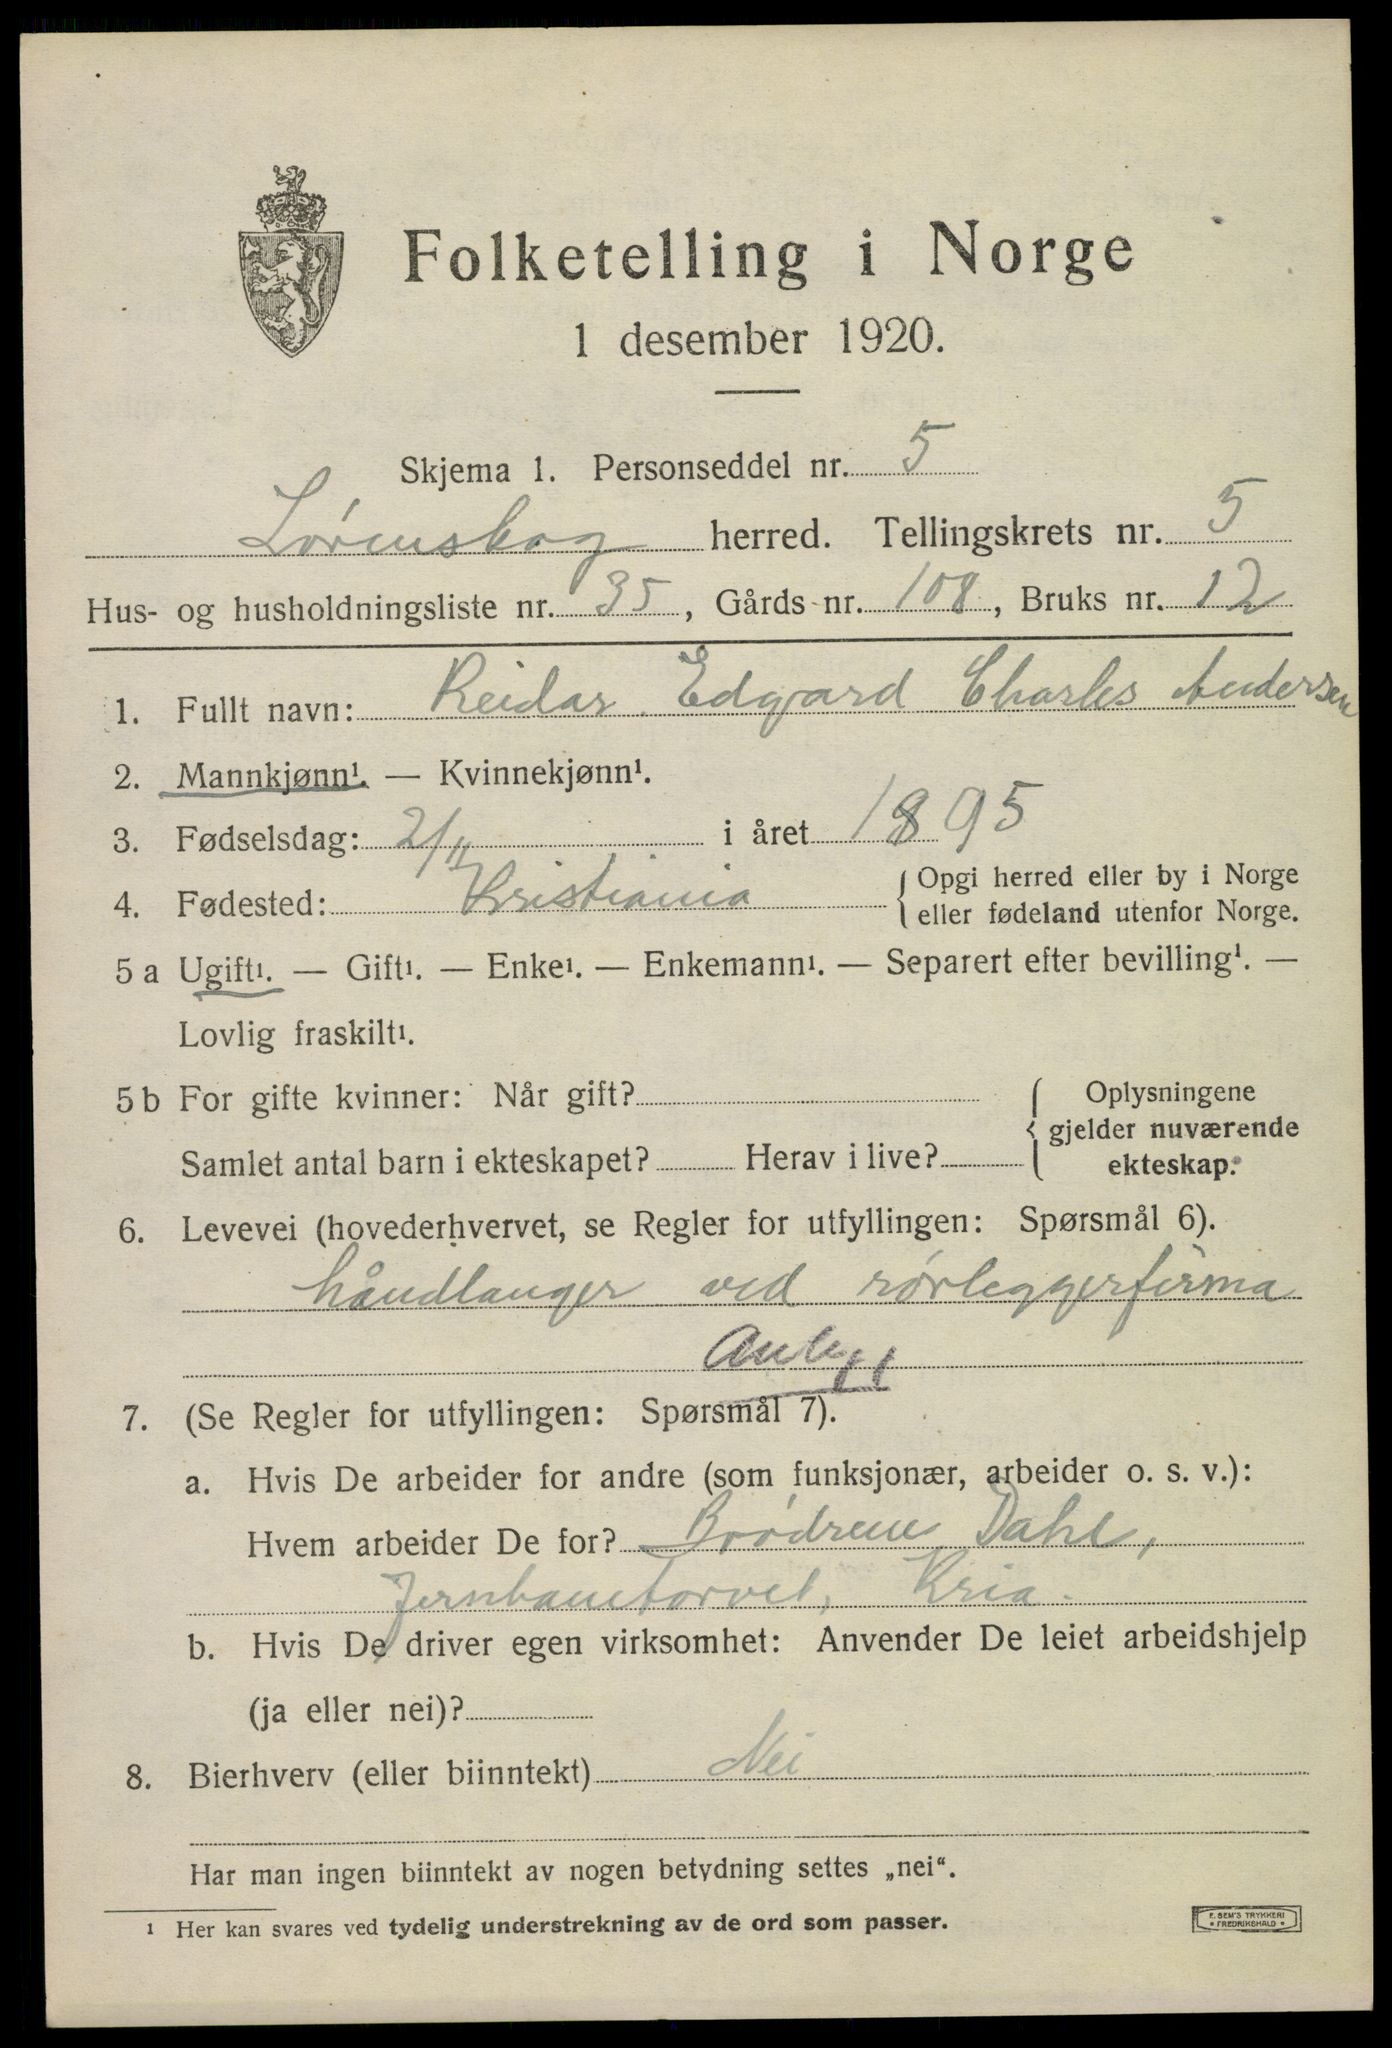 Folketelling i Norge
1 desember 1920.
Skjema 1. Personseddel nr. 5
Lørenskog herred. Tellingskrets nr. 5
Hus- og husholdningsliste nr. 35, Gårds nr. 108, Bruks nr. 12
1. Fullt navn: Reidar Edgard Charles Andersen
2. Mannkjønn¹. — Kvinnekjønn¹.
3. Fødselsdag: 2/11 i året 1895
4. Fødested: Kristiania { Opgi herred eller by i Norge
eller fødeland utenfor Norge.
5a Ugift¹. — Gift¹. — Enke¹. — Enkemann¹. — Separert efter bevilling¹. —
Lovlig fraskilt¹.
5b For gifte kvinner: Når gift? { Oplysningene
gjelder nuværende
Samlet antal barn i ekteskapet? Herav i live? ekteskap.
6. Levevei (hovederhvervet, se Regler for utfyllingen: Spørsmål 6).
håndlanger ved rørleggerfirma
Anlegg
7. (Se Regler for utfyllingen: Spørsmål 7).
a. Hvis De arbeider for andre (som funksjonær, arbeider o. s. v.):
Hvem arbeider De for? Brødrene Dahl,
Jernbanetorvet, Kria.
b. Hvis De driver egen virksomhet: Anvender De leiet arbeidshjelp
(ja eller nei)?
8. Bierhverv (eller biinntekt) Nei
Har man ingen biinntekt av nogen betydning settes „nei“.
¹ Her kan svares ved tydelig understrekning av de ord som passer.
F. SEM'S TRYKKERI
• FREDRIKSHALD •